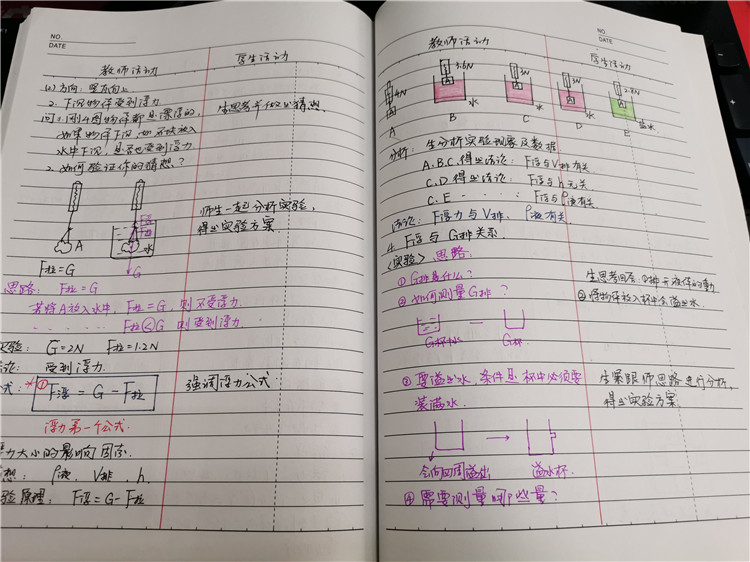 NO.
DATE
教师活动
学生活动
(2)方向：竖直向上
2. 下沉物体受到浮力
生思考并做出猜想.
问1. 刚4图物体都是漂浮的,
如果物体下沉,
水中下沉, 是否也受到浮力
2. 如何验证你的猜想？
师生一起分析实验,
得出实验方案.
F浮
F拉
A
水
G
F拉=G
思路: F拉=G
若将A放入水中, F拉=G, 则不受浮力.
F拉<G 则受到浮力
实验: G=2N F拉=1.2N
结论: 受到浮力.
公式: ① F浮 = G - F拉
强调浮力公式
浮力第一个公式.
浮力大小的影响因素.
猜想: ρ液、V排、h.
实验原理: F浮=G-F拉
NO.
DATE
教师活动
学生活动
4N
3.6N
3N
3N
2.8N
A
A
A
A
A
水
水
水
盐水
A
B
C
D
E
分析: 生分析实验现象及数据
A.B.C.得出结论: F浮与V排有关.
C.D得出结论: F浮与h无关
C.E F浮与ρ液有关.
结论: F浮力与V排、ρ液有关.
4. F浮与G排关系.
<实验> 思路:
① G排是什么?
② 如何测量G排?
生思考回答: ①排开液体的重力
②将物体放入杯中会溢出水
G杯+水
G杯
③ 要溢出水, 条件是杯中必须要
装满水.
生紧跟师思路进行分析,
得出实验方案
会向四周溢出
溢水杯.
④ 需要测量哪些量?